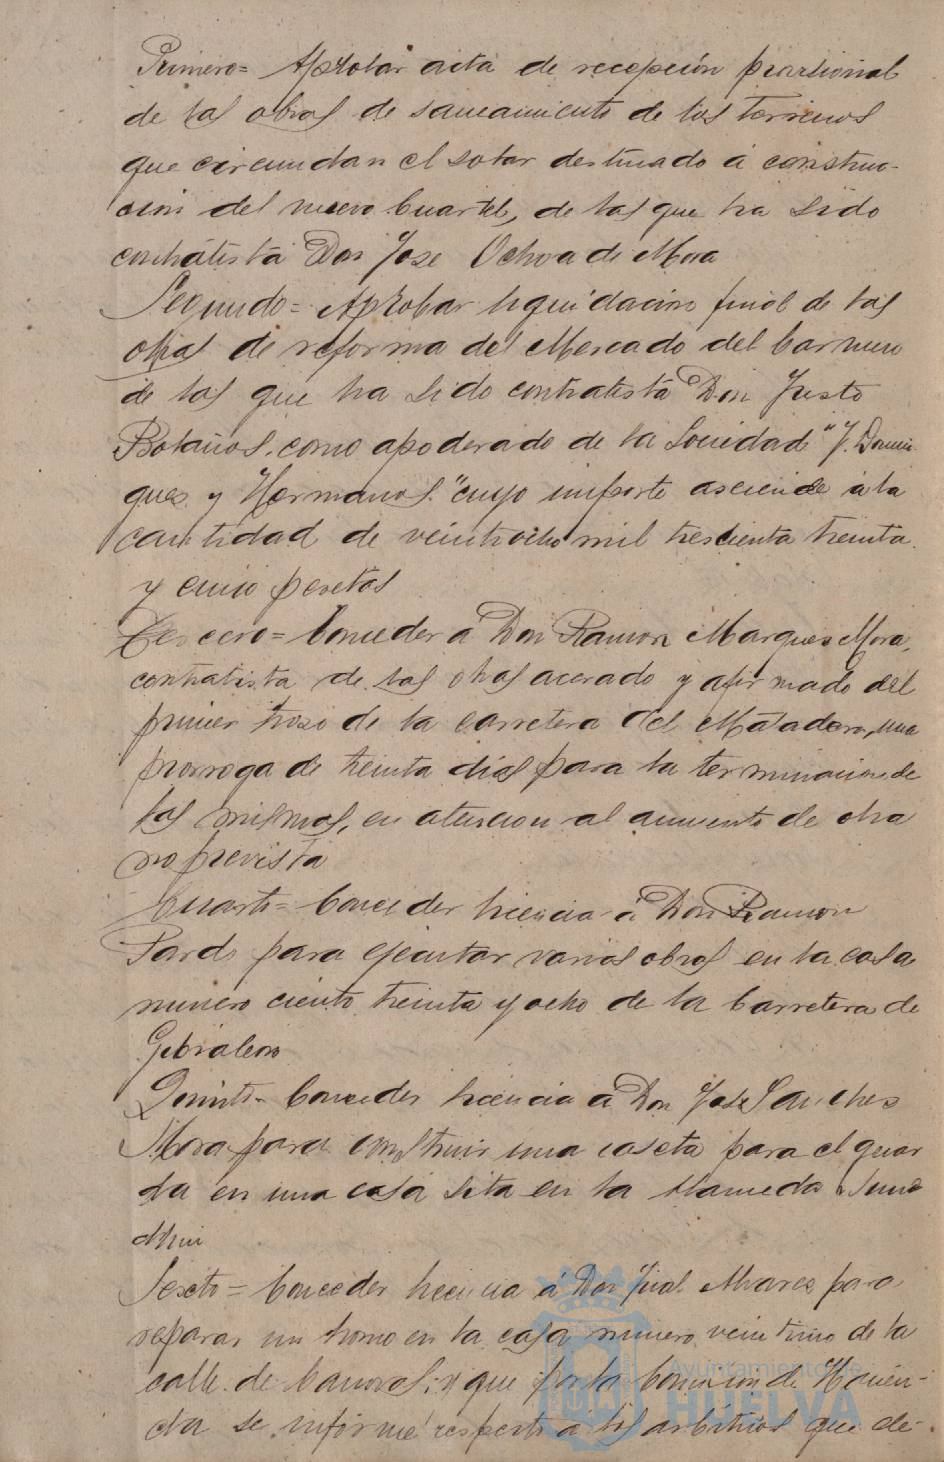 Primero= Aprobar acta de recepción provisional
de las obras de saneamiento de los terrenos
que circundan el solar destinado á construc-
ción del nuevo Cuartel, de las que ha sido
contratista Don José Ochoa de Mora
Segundo= Aprobar liquidacion final de las
obras de reforma del Mercado del Carmen
de las que ha sido contratista Don Justo
Bolaños, como apoderado de la Sociedad "J. Domin
gues y Hermanos" cuyo importe asciende á la
cantidad de veintiocho mil trescienta treinta
y cinco pesetas
Tercero= Conceder á Don Ramon Marques Mora,
contratista de las obras acerado y afirmado del
primer trozo de la carretera del Matadero, una
prorroga de treinta dias para la terminacion de
las mismas, en atencion al aumento de obra
no prevista
Cuarto= Conceder licencia á Don Ramon
Pardo para ejecutar varias obras en la casa
numero ciento treinta y ocho de la Carretera de
Gibraleon
Quinto= Conceder licencia á Don José Sanches
Mora para construir una caseta para el guar
da en una casa sita en la Alameda
Sexto= Conceder licencia á Don Alvares para
reparar un horno en la casa numero veintiuno de la
calle de y que por la Comision de Hacien-
da se informe respecto á los arbitrios que de-
Ayuntamiento de
HUELVA